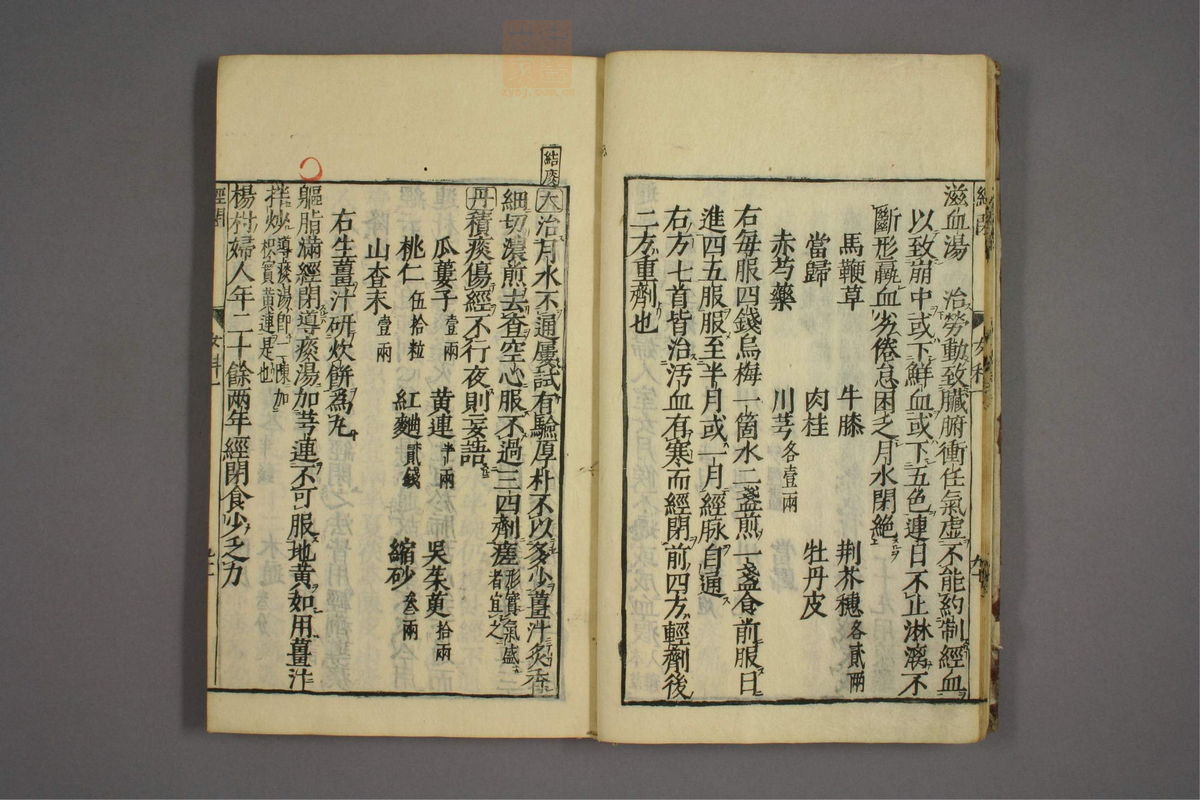 滋血湯 治勞動致臟腑衝任氣虛不能約制經血
以致崩中或下鮮血或下五色連日不止淋漓不
斷形羸血劣倦怠困乏月水閉絶
馬鞭草 牛膝 荆芥穗各貳兩
當歸 肉桂 牡丹皮
赤芍藥 川芎各壹兩
右每服四錢烏梅一箇水二盞煎一盞食前服日
進四五服服至半月或一月經脉自通
右方七首皆治汚血有寒而經閉前四方輕劑後
二方重劑也
結疾
大 治月水不通屢試有驗厚朴不以多少薑汁炙香
細切濃煎去査空心服不過三四劑瘥形實氣盛者宜之
丹 積痰傷經不行夜則妄語
瓜蔞子壹兩 黄連半兩 吴茱萸拾兩
桃仁伍拾粒 紅麯貳錢 縮砂叁兩
山查末壹兩
右生薑汁研炊餅爲丸
軀脂滿經閉導痰湯加芎連不可服地黄如用薑汁
拌炒導痰湯即二陳加枳實黄連是也
楊村婦人年二十餘兩年經閉食少乏力